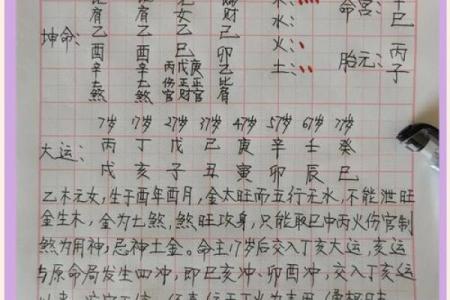 比肩 比肩 元女 偏财 木: 命宫: 辛巳
坤命: 乙 乙 乙 己 水:
酉 酉 巳 卯 火: 胎元: 丙子
辛 辛 丙戊庚 乙 土:
煞 煞 伤正正官财官 比肩
7岁 17岁 27岁 37岁 47岁 57岁 67岁 77岁
大运: 丙 丁 戊 己 庚 辛 壬 癸
戌 亥 子 丑 寅 卯 辰 巳
乙木元女,生于酉年酉月,金太旺而五行无水,不能泄旺
金生木,金为七煞,煞旺攻身,只能取巳中丙火伤官制
煞为用神,忌神土金。命主17岁后交入丁亥大运,亥运
与原命局发生四冲,即巳亥冲、卯酉冲,交入丁亥运